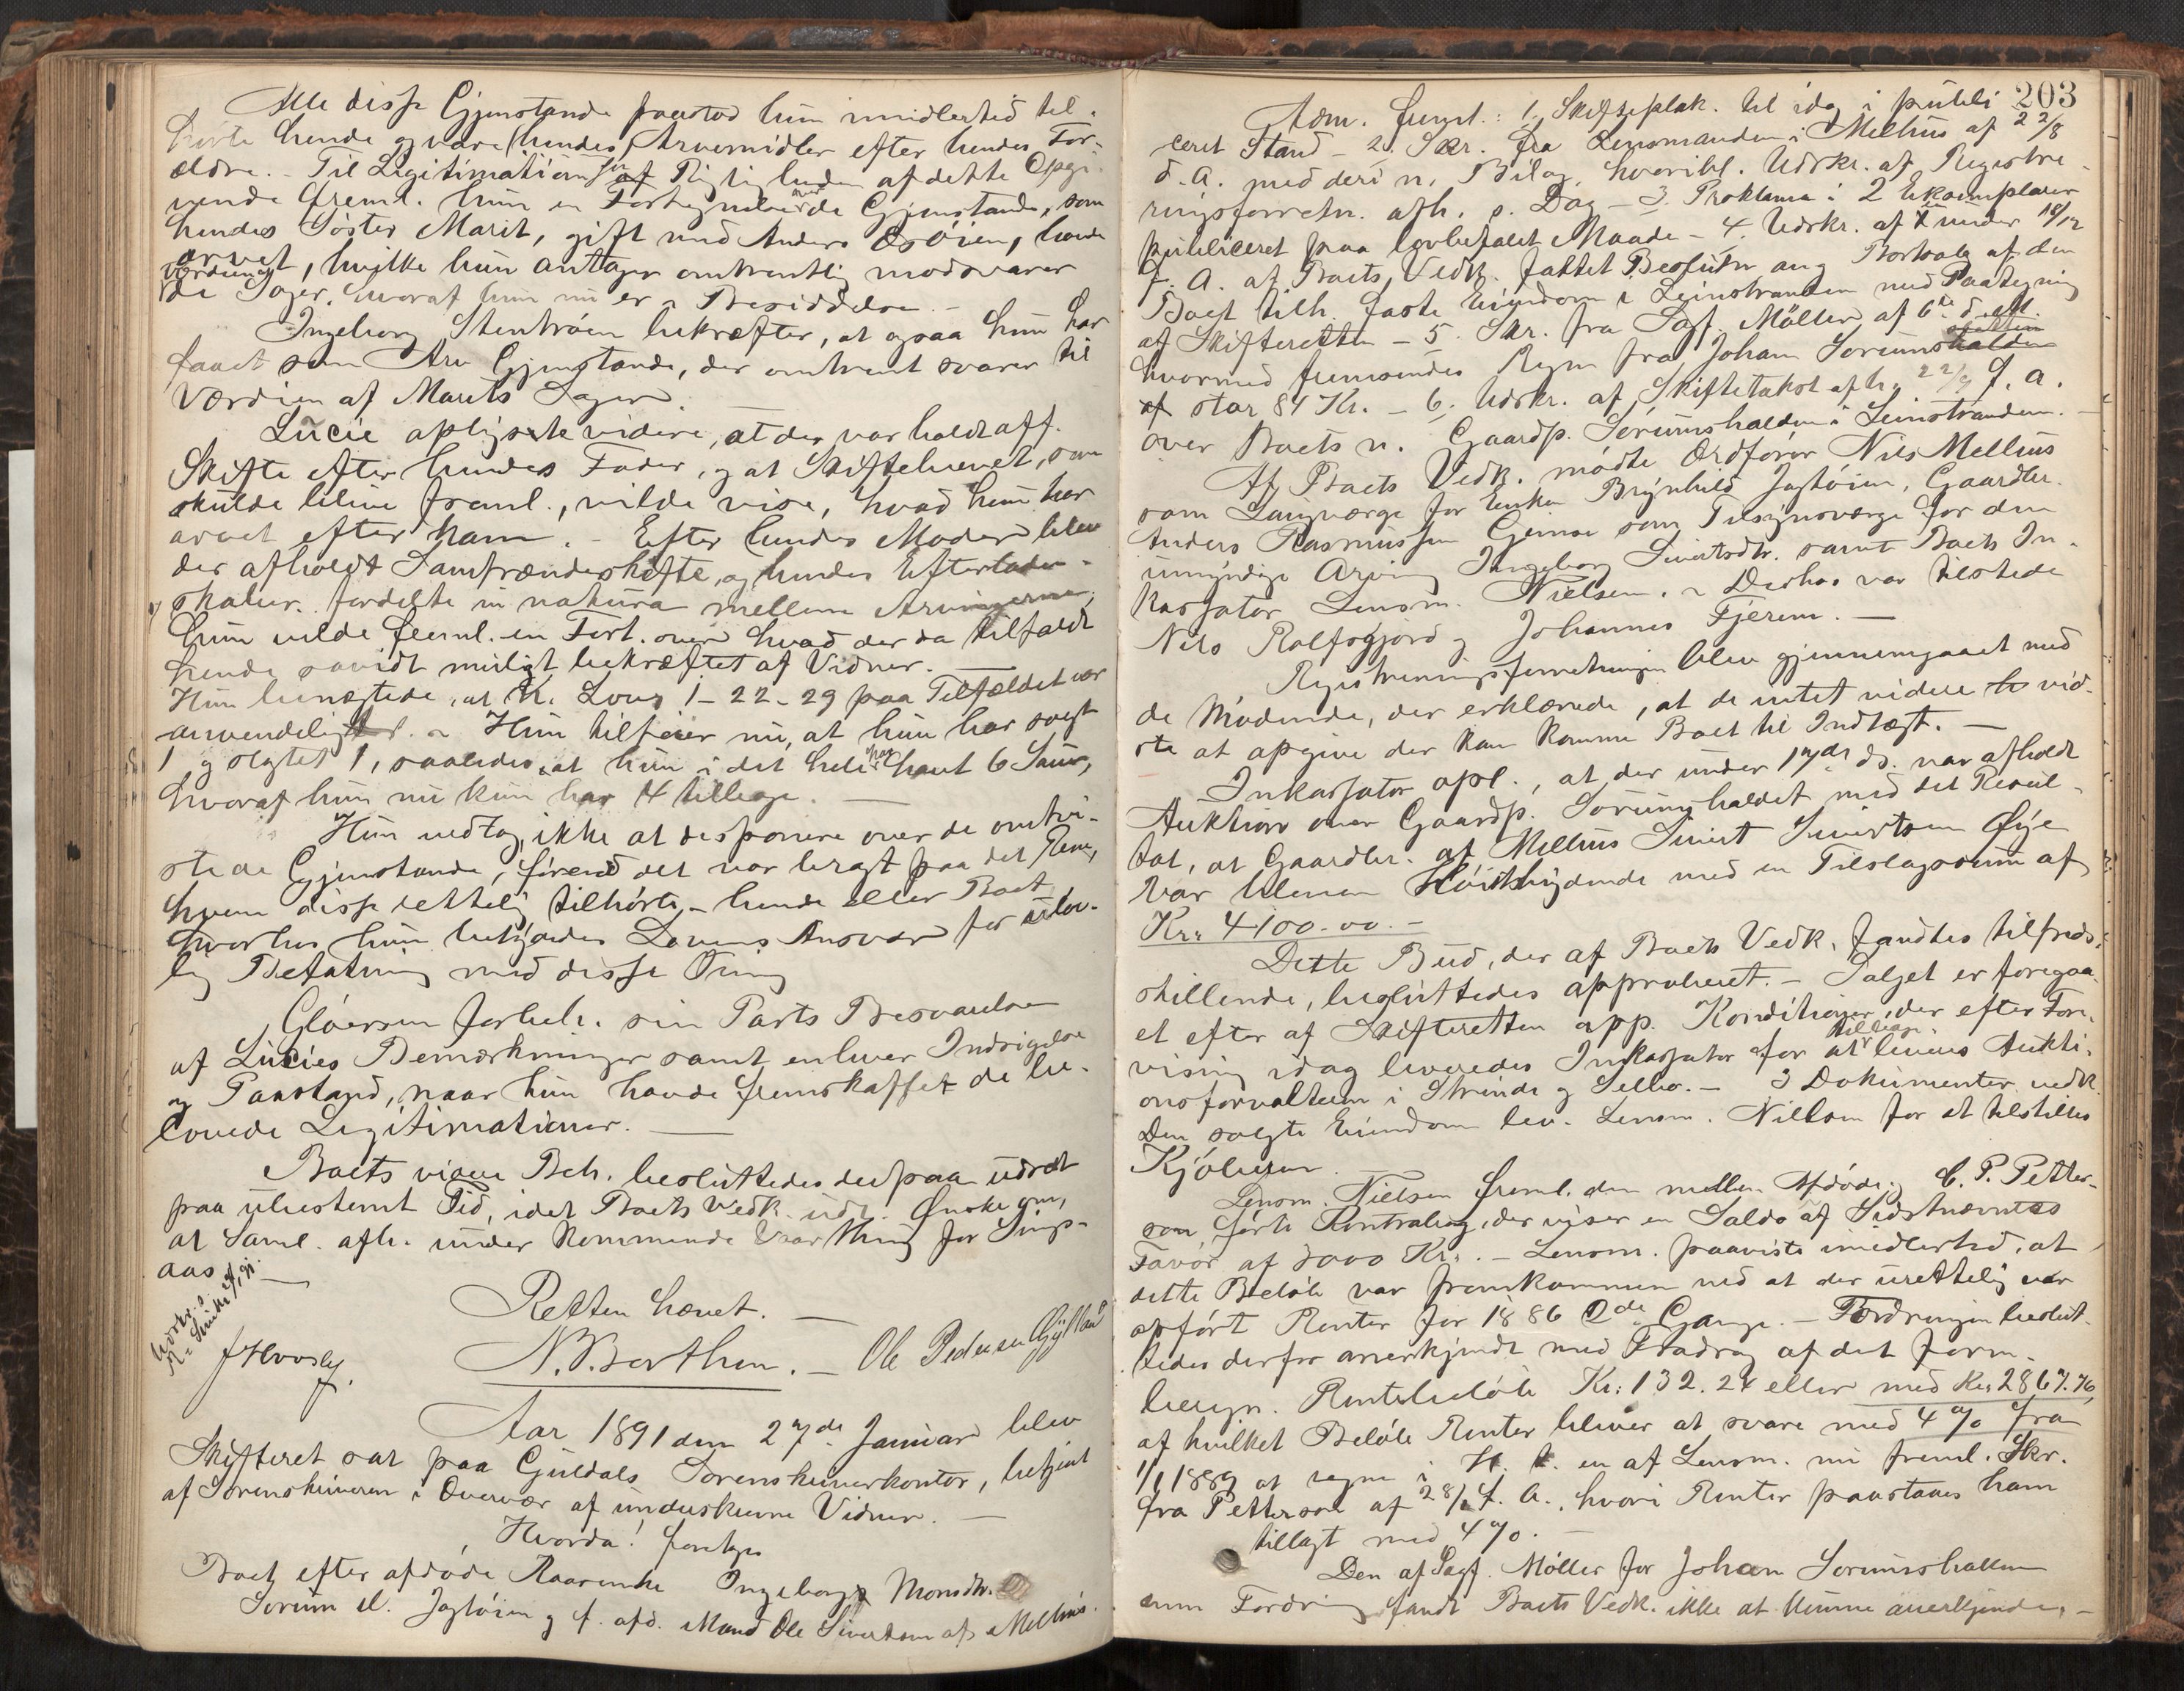 Alle disse Gjenstande paastod hun imidlertid til-
hørte hende og være hendes Arvemidler efter hendes For-
ældre. - Til Legitimation for Rigtigheden af dette Opgi-
vende freml. hun en Fortegnelse over de Gjenstande, som
hendes Søster Marit, gift med Anders Øsöien, havde
arvet, hvilke hun antager omtrentlig modsvarer
Værdien af
de Sager, hvoraf hun nu er i Besiddelse. -
Ingeborg Stentröen bekræfter, at ogsaa hun har
faaet som Arv Gjenstande, der omtrent svarer til
Værdien af Marits Sager. -
Lucie oplyste videre, at der var holdt off.
Skifte efter hendes Fader, og at Skiftebrevet, som
skulde blive freml., vilde vise, hvad hun har
arvet efter ham. - Efter hendes Moder blev
der afholdt Samfrændeskifte, og hendes Efterladen-
skaber fordelte in natura mellem Arvingerne;
hun vilde freml. en Fort. over hvad der da tilfaldt
hende savidt muligt bekræftet af Vidner. -
Hun benægtede, at K. Lovs 1-22-29 paa Tilfældet var
anvendelig. - Hun tilföier nu, at hun har solgt
1 og slagtet 1, saaledes at hun i det hele har havt 6 Sauer,
hvoraf hun nu kun har 4 tilbage. -
Hun vedtog, ikke at disponere over de omtvi-
stede Gjenstande, förend det var bragt paa det Rene,
hvem disse rettelig tilhörte, - hende eller Boet
hvorhos hun betydedes Lovens Ansvar for ulov-
lig Befatning med disse Ting
Gløersen forbeh. sin Parts Besvarelse
af Lucies Bemærkninger samt enhver Indsigelse
og Paastand, naar hun havde fremskaffet de be-
lovede Legitimationer. -
Boets videre Beh. besluttedes derpaa udsat
paa ubestemt Tid, idet Boets Vedk. udt. Ønske om,
at Saml. afh. under kommende Vaarthing for Sing-
aas. -
Retten hævet. -
N. B. Berthen. - Ole Pedersen Gylland
J Hovsly
Aar 1891 den 27de Januar blev
Skifteret sat paa Guldals Sorenskriverkontor, betjent
af Sorenskriveren i Overvær af underskrevne Vidner. -
Hvorda! foretoges
Boet efter afdöde Kaarenke Ingeborg Monsdtr.
Sorum el. Jagtöien og f. afd. Mand Ole Sivertsen af Melhus.
203
Adm. freml.: 1. Skifteplak. til idag i publi
ceret Stand - 2. Skr. fra Lensmanden i Melhus af 22/8
d. A. med deri n. Bilag, hvoribl. Udskr. af Registre-
ringsforretn. afh. s. Dag - 3. Proklama i 2 Eksemplarer
publiceret paa lovbefalet Maade - 4. Udskr. af en under 18/12
f. A. af Boets Vedk. fattet Beslutn. ang Bortsalg af den
Boet tilh. faste Eiendom i Leinstranden med Paategning
af Skifteretten - 5. Skr. fra Sagf. Möller af 6te d. M.
hvormed fremsendes Regn fra Johan Sorumshalden
stor 84 Kr. - 6. Udskr. af Skiftetakst afh. 22/9 f. a.
over Boets n. Gaardp. Sörumshalden i Leinstranden. -
Af Boets Vedk. mödte Ordförer Nils Melhus
som Laugværge for Enken Brynhild Jagtöien, Gaardbr.
Anders Rasmussen Gemse som Tilsynsværge for den
umyndige Arving Ingeborg Sivertsdtr. samt Boets In-
kassator Lensm. Nielsen. - Derhos var tilstede
Nils Rolfsgjord og Johannes Fjerem. -
Registreringsforretningen blev gjennemgaaet med
de Mödende, der erklærede, at de intet videre vid-
ste at opgive der kan komme Boet til Indtægt. -
Inkassator opl., at der under 17de ds. var afholdt
Auktion over Gaardp. Sorumshaldet med det Resul-
tat, at Gaardbr. af Melhus Sivert Sivertsen Øye
var bleven Höistbydende med en Tilslagssum af
Kr. 4100.00. -
Dette Bud, der af Boets Vedk. fandtes tilfreds-
stillende, besluttedes approberet. - Salget er foregaa-
et efter af Skifteretten app. Konditioner, der efter Fore-
visning idag leveredes Inkassator for at tilbage leveres Aukti-
onsforvalteren i Strinde og Selbo. - 3 Dokumenter vedk.
den solgte Eiendom lev. Lensm. Nielsen for at tilstilles
Kjöberen. -
Lensm. Nielsen freml. den mellem Afdöde og C. P. Petter-
son förte Kontrabog, der viser en Saldo af Sidstnævntes
Favör af 3000 Kr. - Lensm. paaviste imidlertid, at
dette Beløb var fremkommen ved at der urettelig var
opfört Renter for 1886 2de Gange. - Fordringen beslut-
tedes derfor anerkjendt med Fradrag af det form.
beregn. Rentebeløb Kr: 132.24 eller med Kr. 2867.76,
af hvilket Beløb Renter bliver at svare med 4% fra
1/1 1889 at regne i H. t. en af Lensm. nu freml. Skr.
fra Petterson af 28/ f. A., hvori Renter paastaaes ham
tillagt med 4%. -
Den af Sagf. Møller for Johan Sorumshallem
anm Fordring fandt Boets Vedk. ikke at kunne anerkjende, -